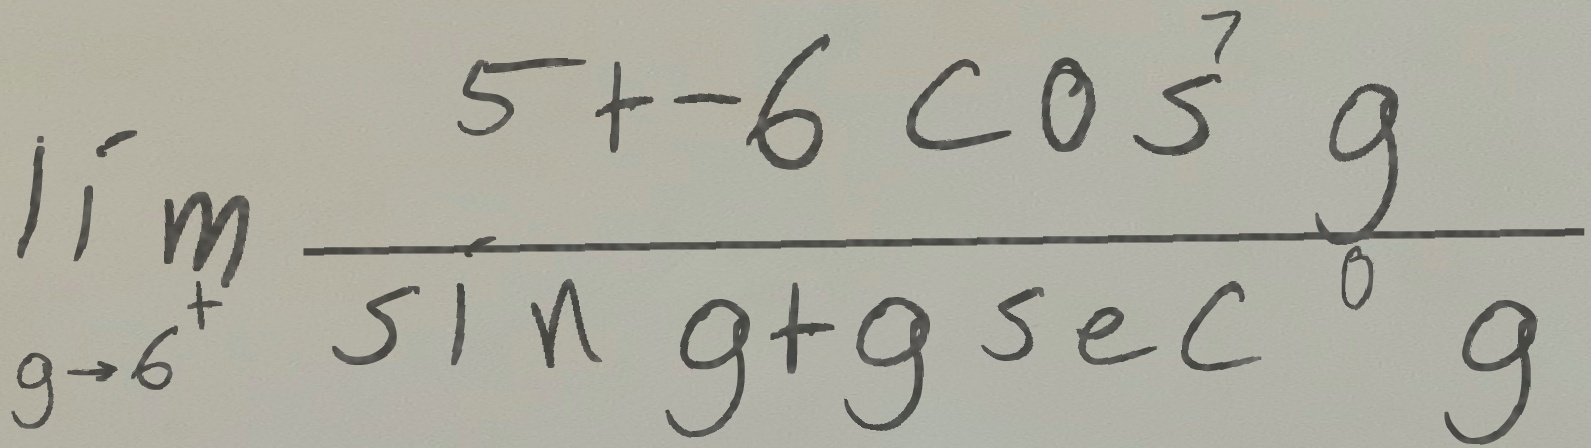 \lim_{g \to 6^+} \frac{5 + -6 \cos^7 g}{\sin g + g \sec^0 g}